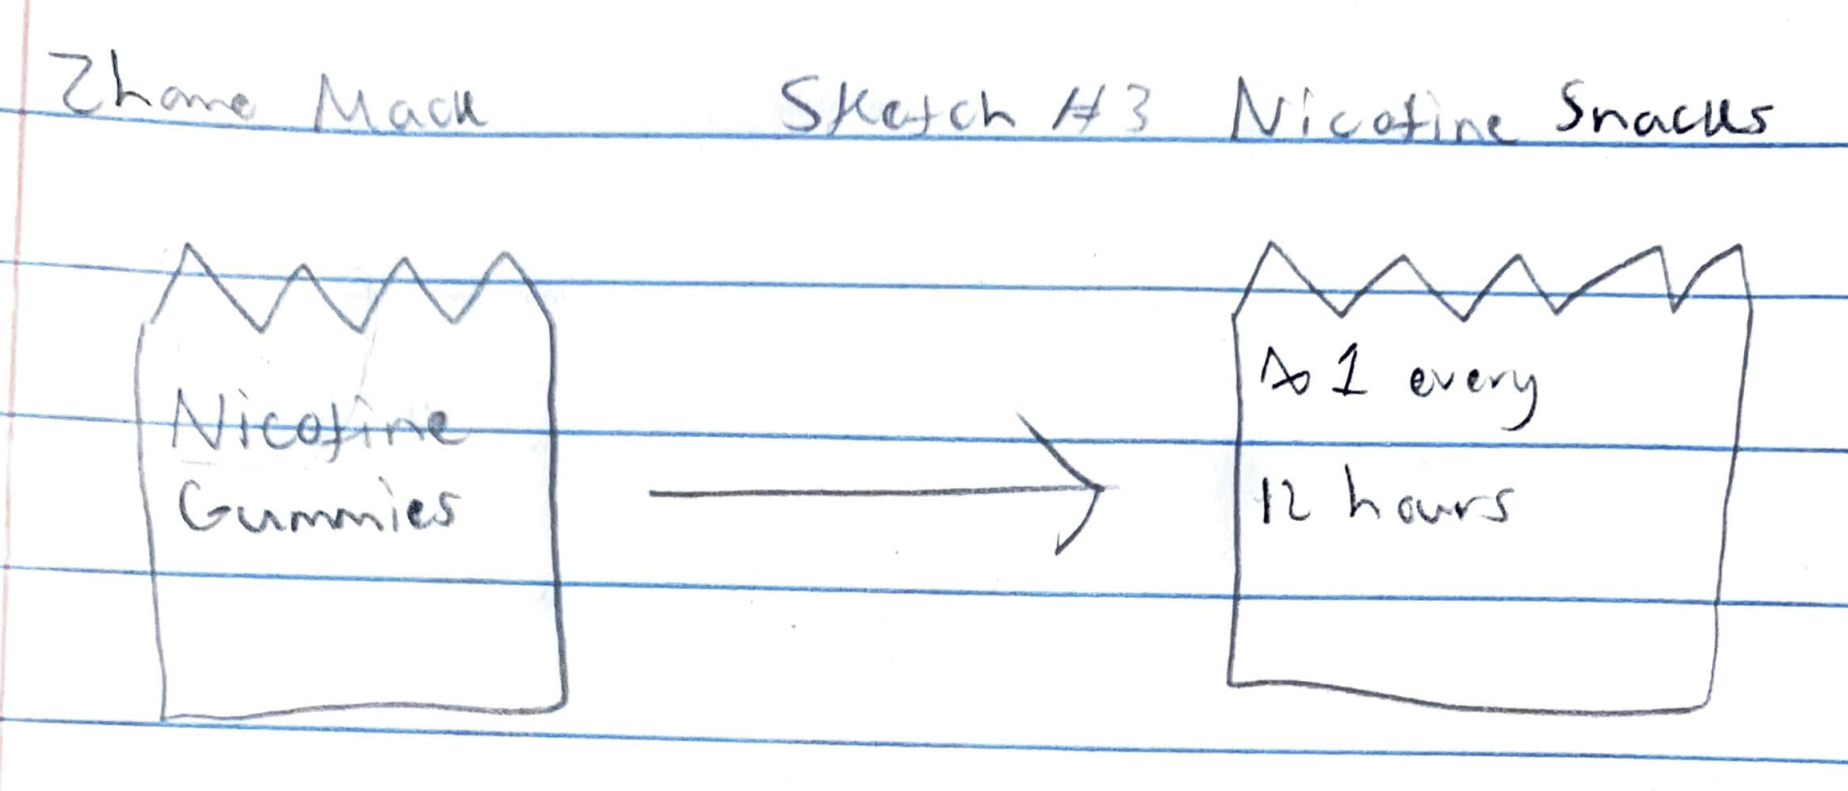 Zhane Mack Sketch #3 Nicotine Snacks
Nicotine
Gummies
1 every
12 hours